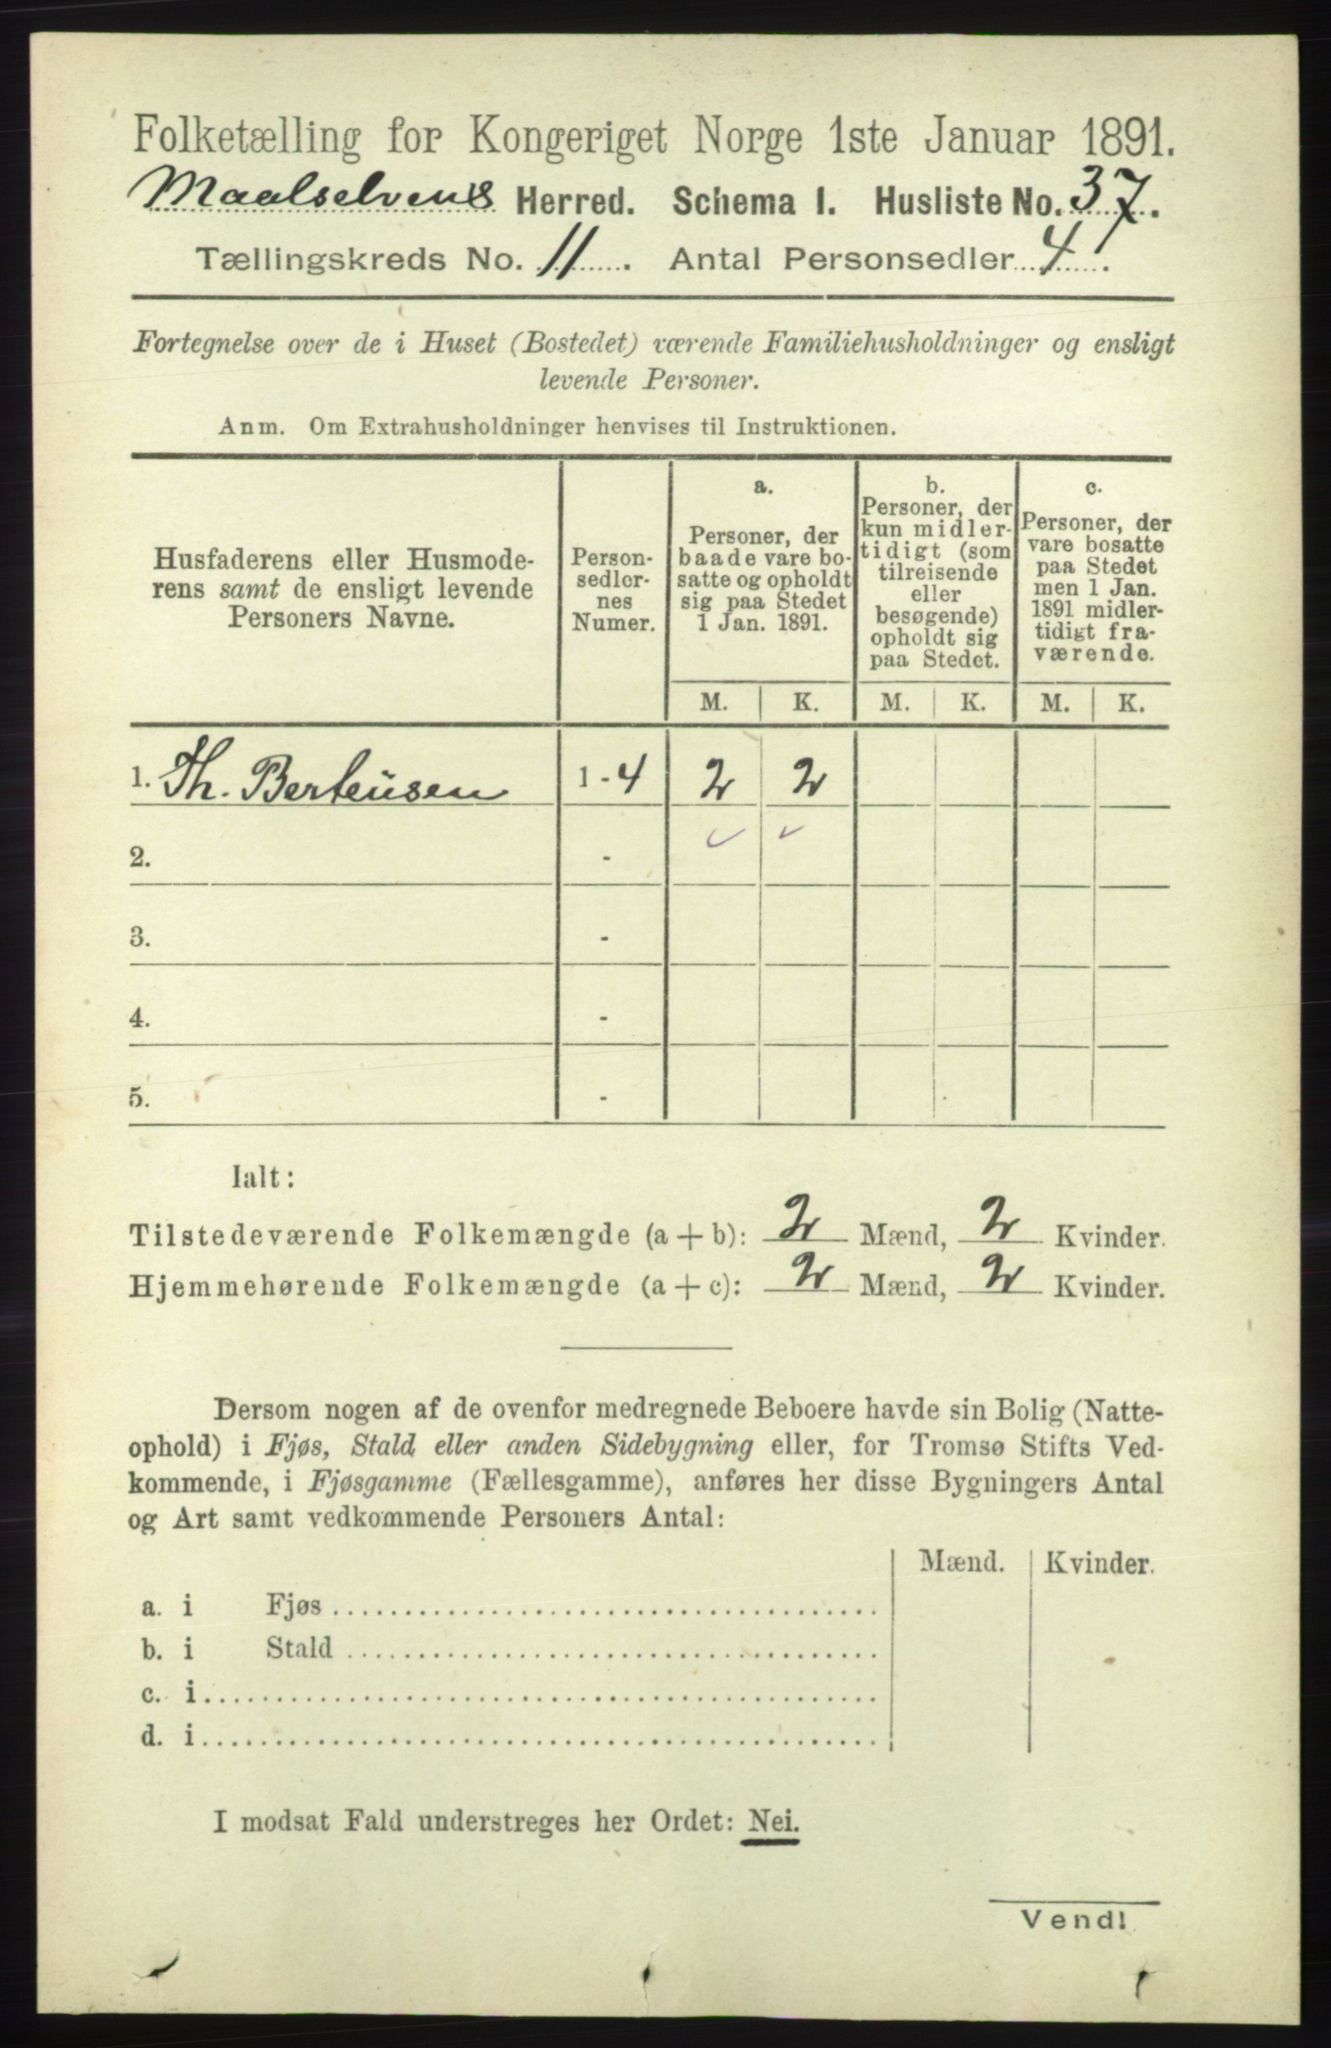 Folketælling for Kongeriget Norge 1ste Januar 1891.
Maalselvens Herred. Schema I. Husliste No. 37.
Tællingskreds No. 11. Antal Personsedler 4.
Fortegnelse over de i Huset (Bostedet) værende Familiehusholdninger og ensligt
levende Personer.
Anm. Om Extrahusholdninger henvises til Instruktionen.
Husfaderens eller Husmode-
rens samt de ensligt levende
Personers Navne.
Person-
sedler-
nes
Numer.
a.
Personer, der
baade vare bo-
satte og opholdt
sig paa Stedet
1 Jan. 1891.
b.
Personer, der
kun midler-
tidigt (som
tilreisende
eller
besøgende)
opholdt sig
paa Stedet.
c.
Personer, der
vare bosatte
paa Stedet
men 1 Jan.
1891 midler-
tidigt fra-
værende.
M. K. M. K. M. K.
1. Th. Berteusen 1-4 2 2
2. -
3. -
4. -
5. -
Ialt:
Tilstedeværende Folkemængde (a + b): 2 Mænd, 2 Kvinder.
Hjemmehørende Folkemængde (a + c): 2 Mænd, 2 Kvinder.
Dersom nogen af de ovenfor medregnede Beboere havde sin Bolig (Natte-
ophold) i Fjøs, Stald eller anden Sidebygning eller, for Tromsø Stifts Ved-
kommende, i Fjøsgamme (Fællesgamme), anføres her disse Bygningers Antal
og Art samt vedkommende Personers Antal:
Mænd. Kvinder.
a. i Fjøs
b. i Stald
c. i
d. i
I modsat Fald understreges her Ordet: Nei.
Vend!